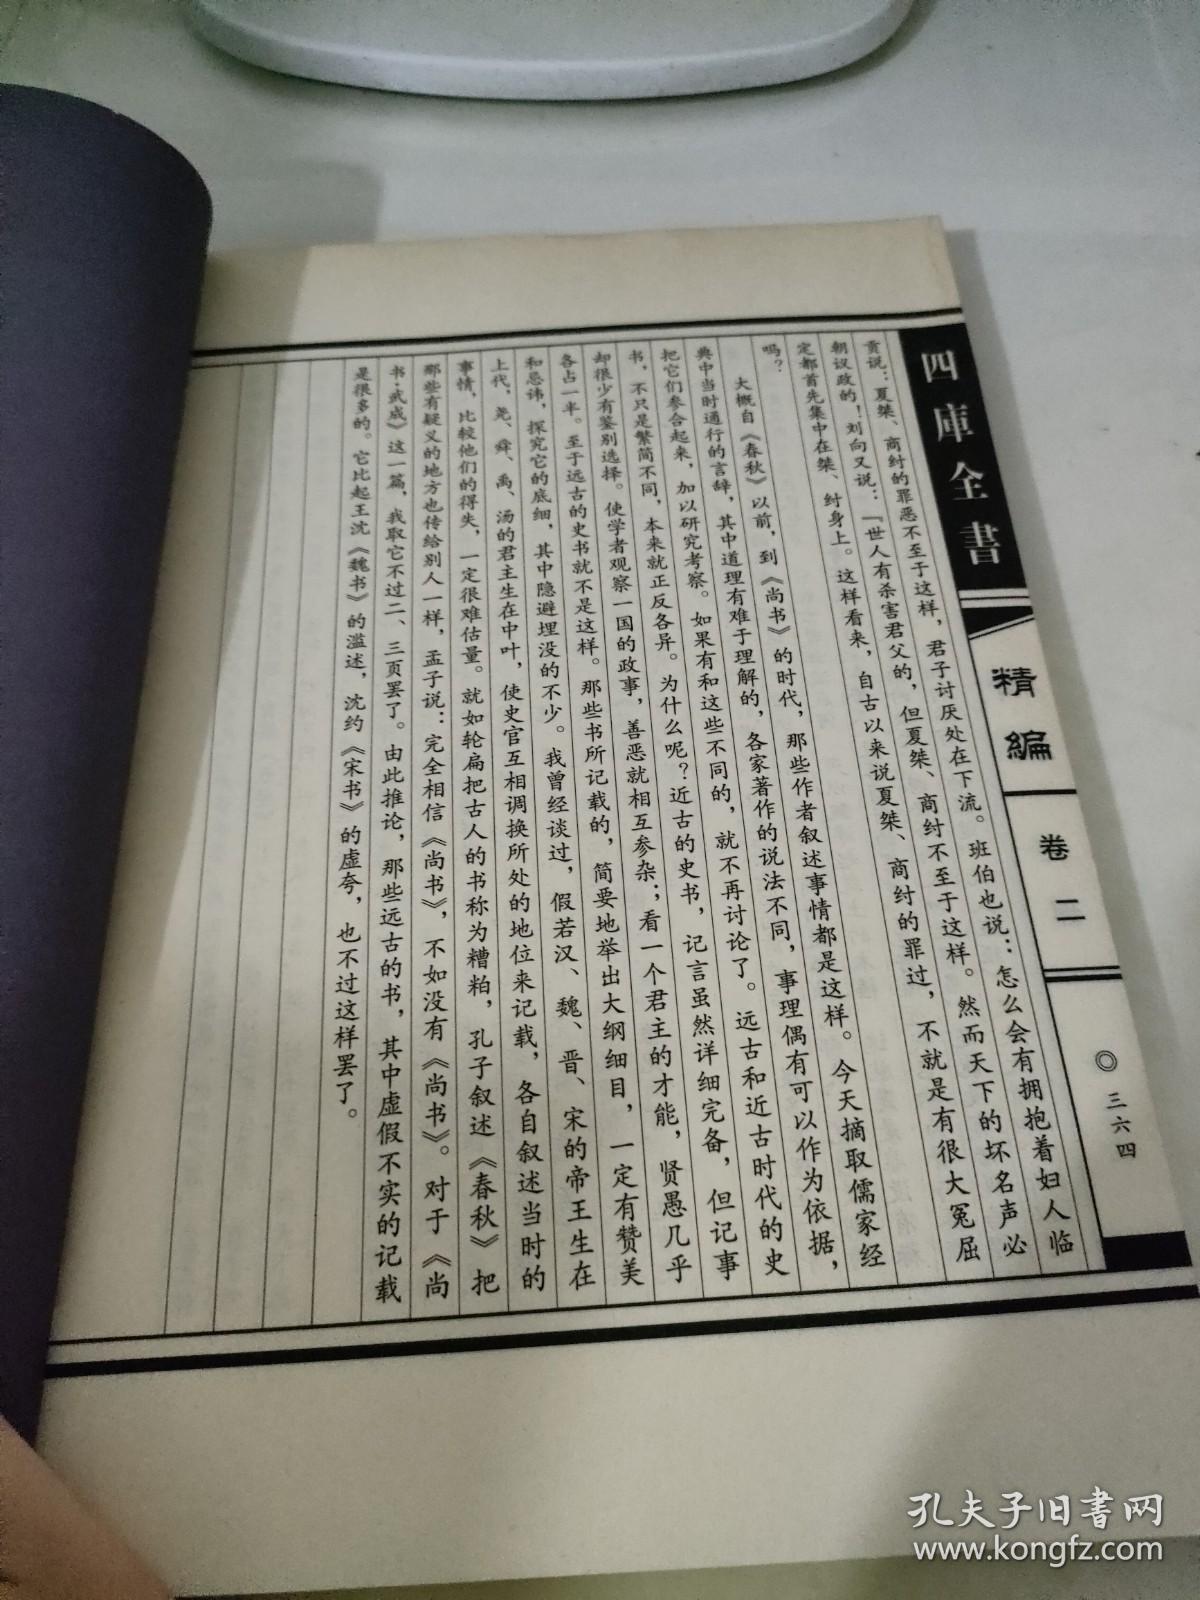 四庫全書
精編
卷二
◎三六四
贡说：夏桀、商纣的罪恶不至于这样，君子讨厌处在下流。班伯也说：怎么会有拥抱着妇人临
朝议政的！刘向又说：『世人有杀害君父的，但夏桀、商纣不至于这样。然而天下的坏名声必
定都首先集中在桀、纣身上。这样看来，自古以来说夏桀、商纣的罪过，不就是有很大冤屈
吗？
大概自《春秋》以前，到《尚书》的时代，那些作者叙述事情都是这样。今天摘取儒家经
典中当时通行的言辞，其中道理有难于理解的，各家著作的说法不同，事理偶有可以作为依据，
把它们参合起来，加以研究考察。如果有和这些不同的，就不再讨论了。远古和近古时代的史
书，不只是繁简不同，本来就正反各异。为什么呢？近古的史书，记言虽然详细完备，但记事
却很少有鉴别选择。使学者观察一国的政事，善恶就相互参杂；看一个君主的才能，贤愚几乎
各占一半。至于远古的史书就不是这样。那些书所记载的，简要地举出大纲细目，一定有赞美
和忌讳，探究它的底细，其中隐避埋没的不少。我曾经谈过，假若汉、魏、晋、宋的帝王生在
上代，尧、舜、禹、汤的君主生在中叶，使史官互相调换所处的地位来记载，各自叙述当时的
事情，比较他们的得失，一定很难估量。就如轮扁把古人的书称为糟粕，孔子叙述《春秋》把
那些有疑义的地方也传给别人一样，孟子说：完全相信《尚书》，不如没有《尚书》。对于《尚
书·武成》这一篇，我取它不过二、三页罢了。由此推论，那些远古的书，其中虚假不实的记载
是很多的。它比起王沈《魏书》的滥述，沈约《宋书》的虚夸，也不过这样罢了。
孔夫子旧书网
www.kongfz.com